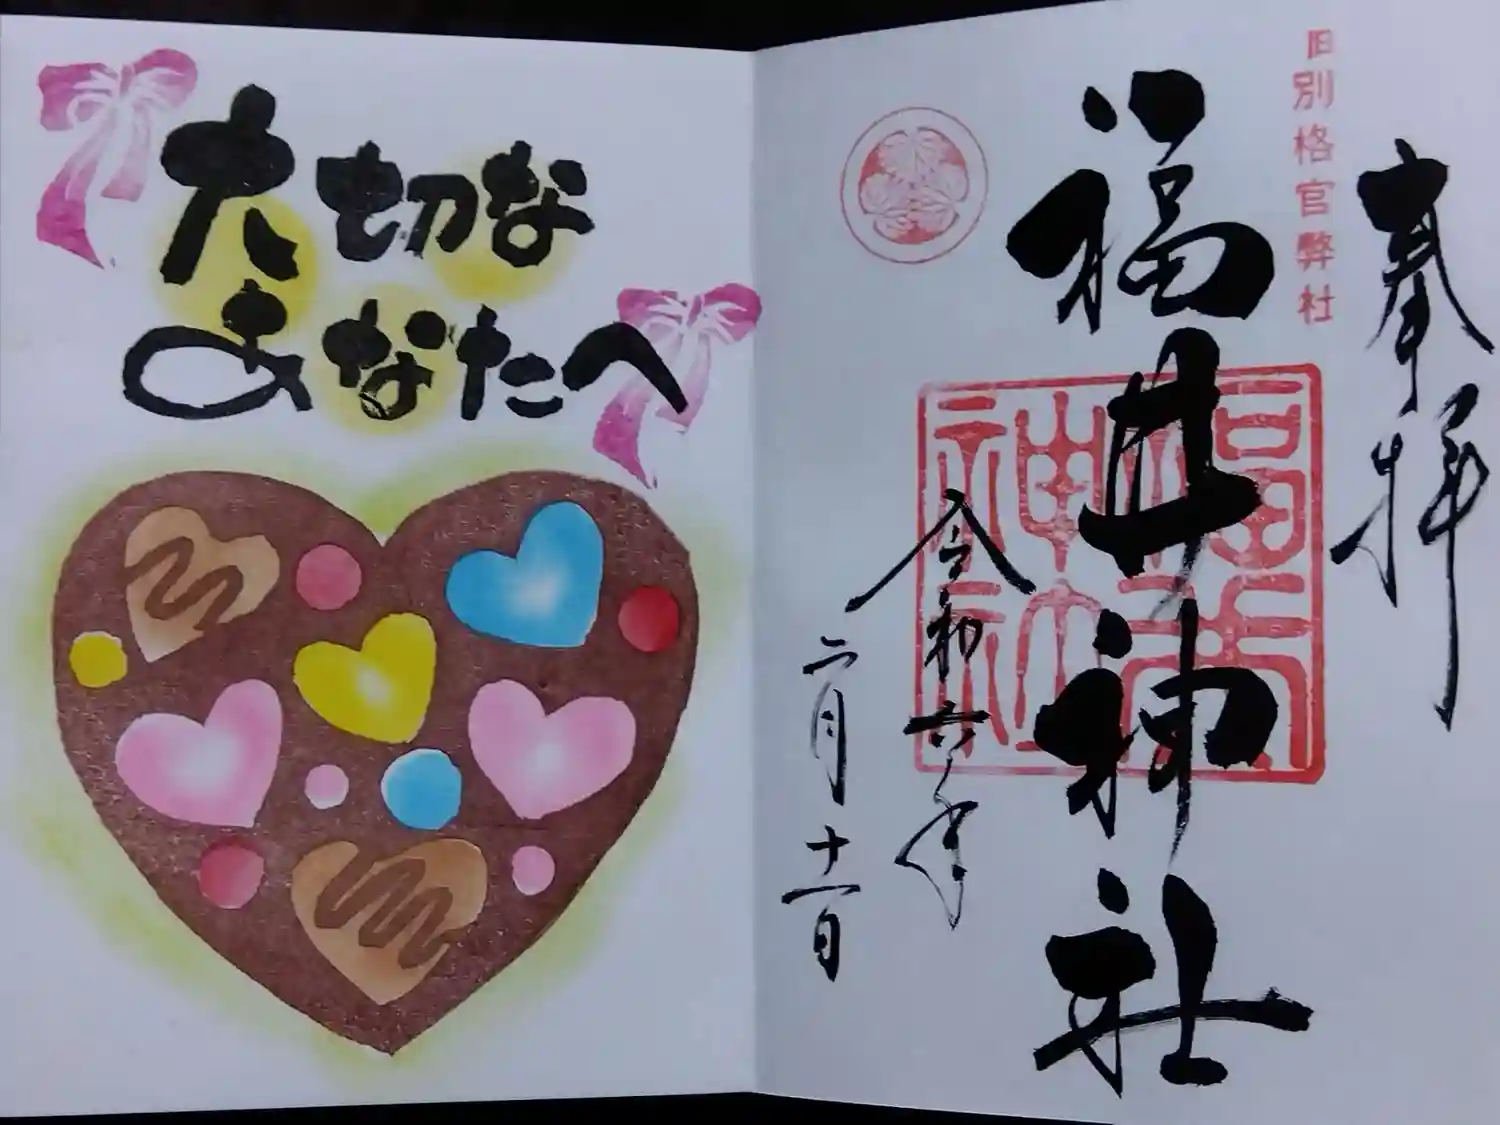 大切な
あなたへ
奉拝
旧別格官弊社
福井神社
福井神社
令和六年
二月十一日